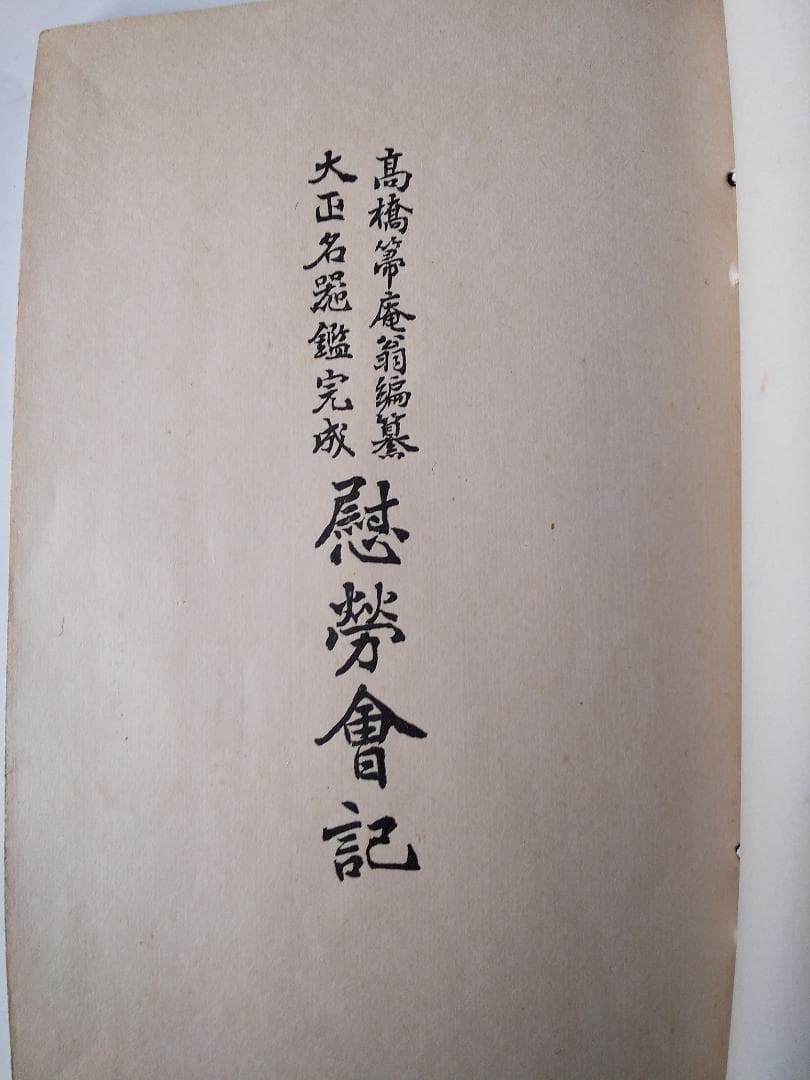 高橋箒庵翁編纂
大正名器鑑完成
慰勞會記